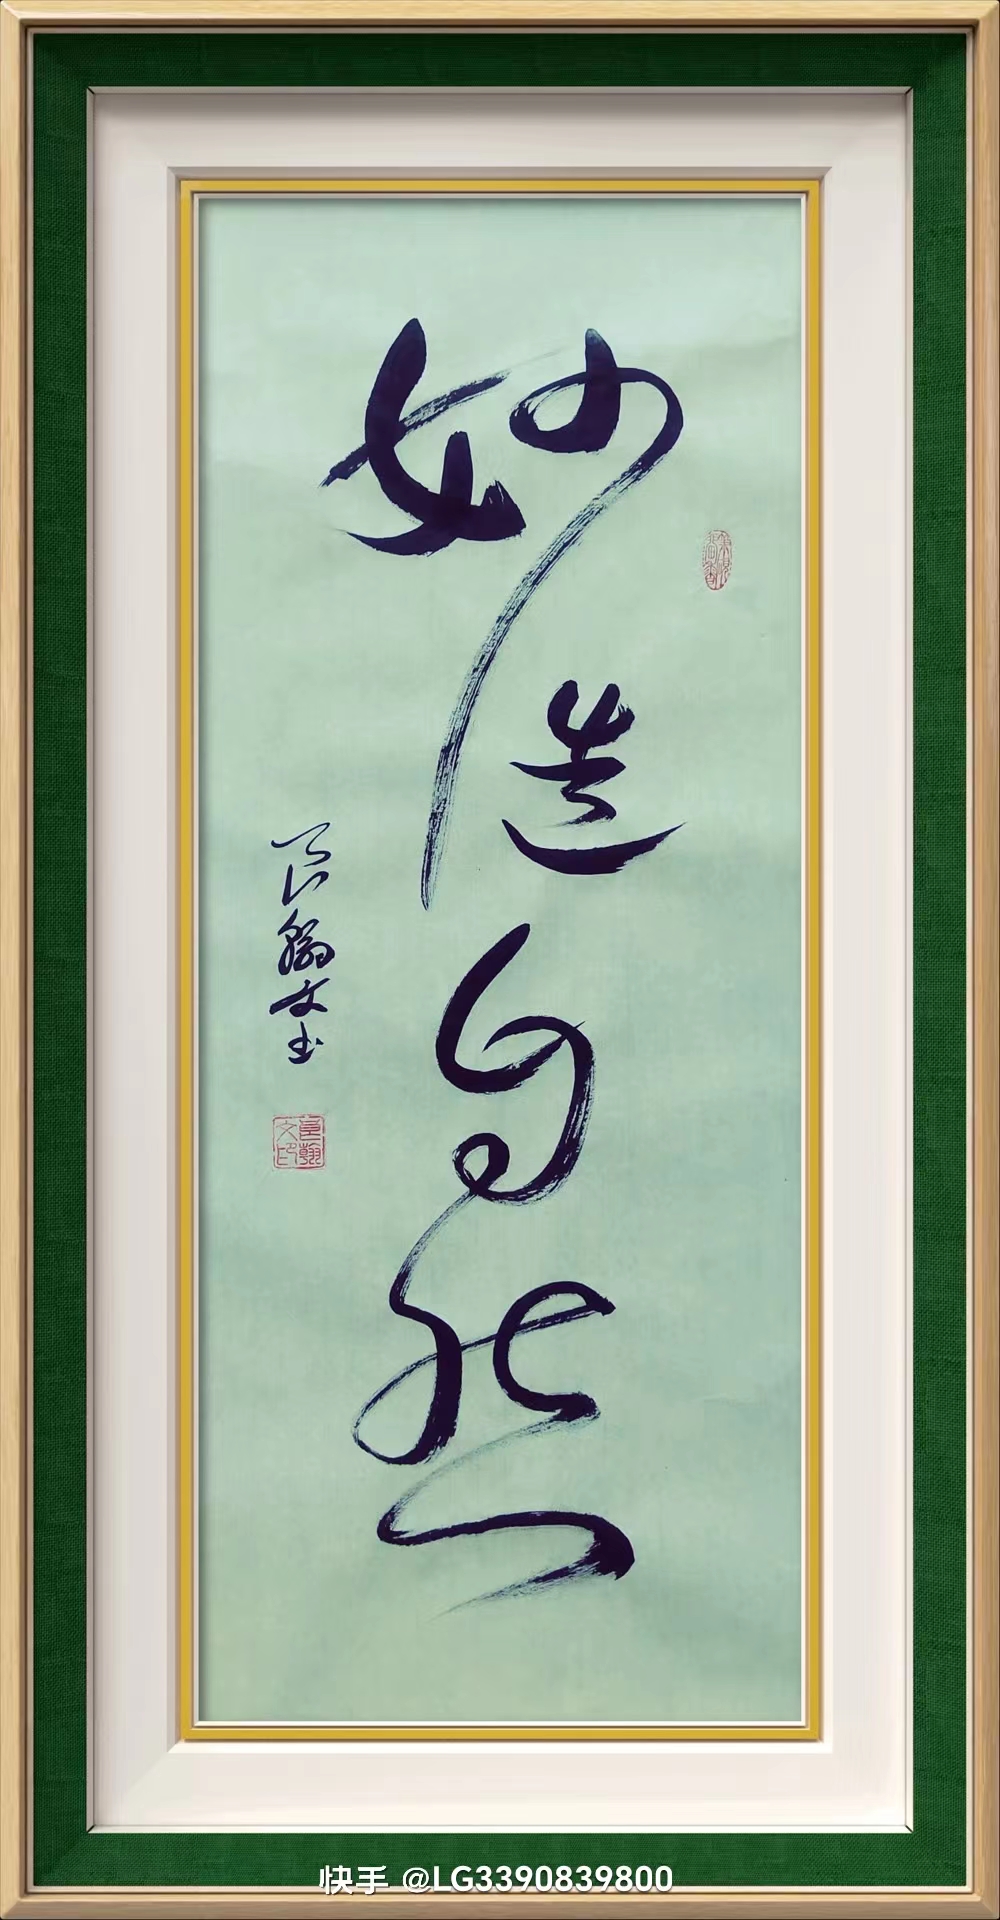 妙造自然
翰文书
快手 @LG3390839800